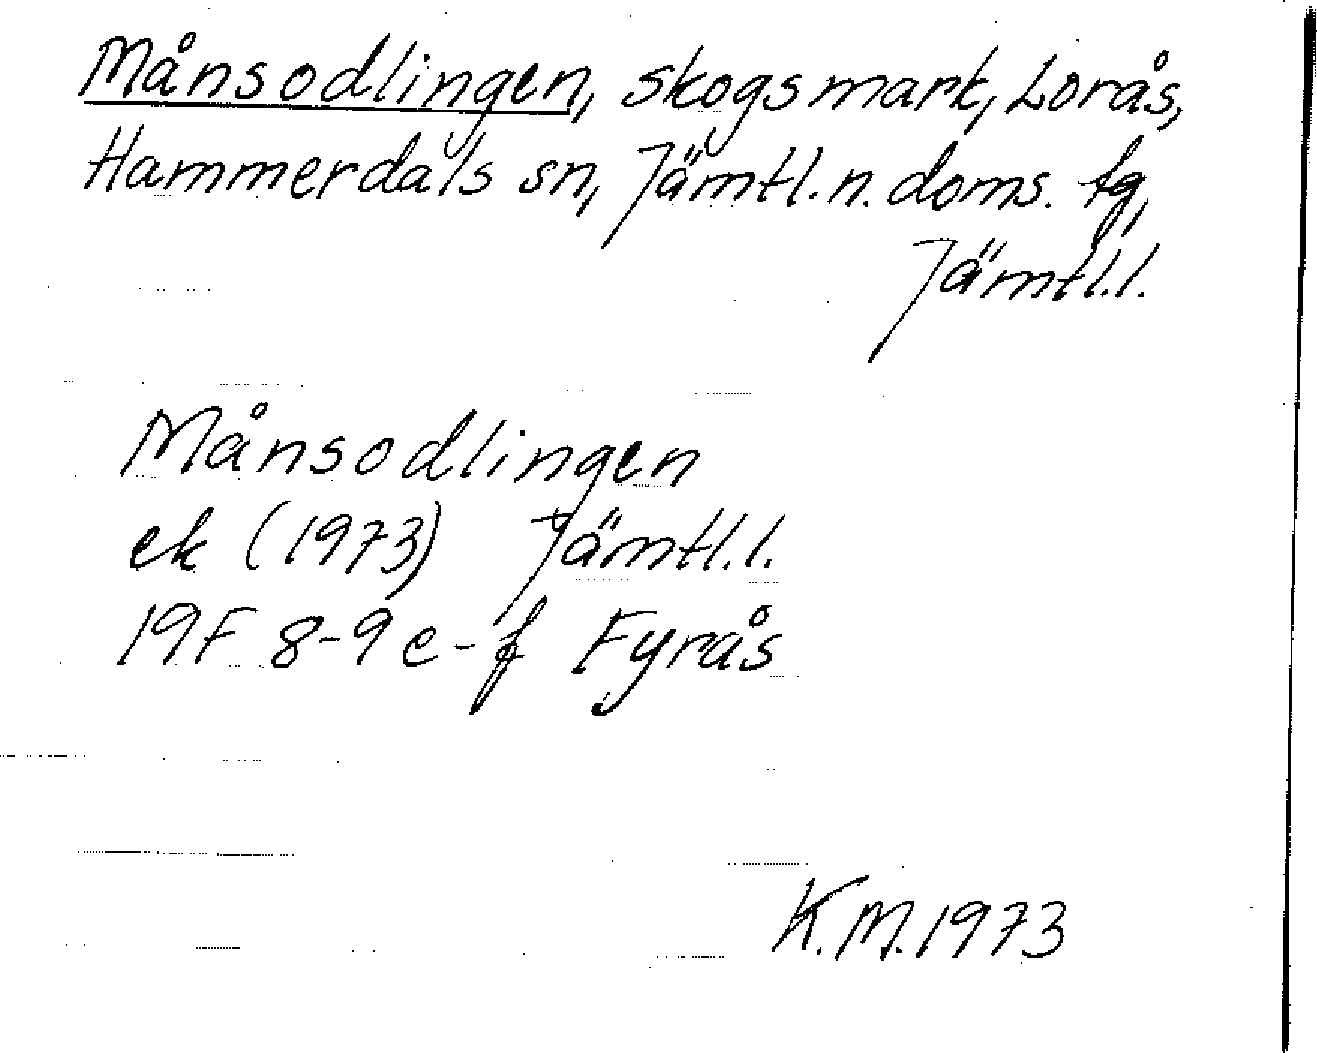 Månsodlingen, skogsmark, Lorås,
Hammerdals sn, Jämtl.n.doms. tg,
Jämtl.l.
Månsodlingen
ek (1973) Jämtl.l.
19F 8-9 e-f Fyrås
K.M.1973